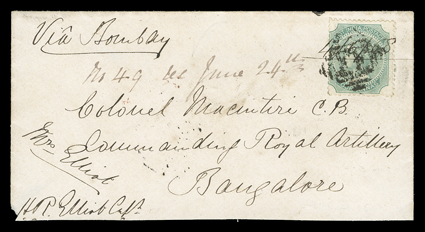 Via Bombay
No 49 rec June 24th
Colonel Macintire C.B.
Commanding Royal Artillery
Bangalore
Mrs Elliot
H.R. Elliot Capt